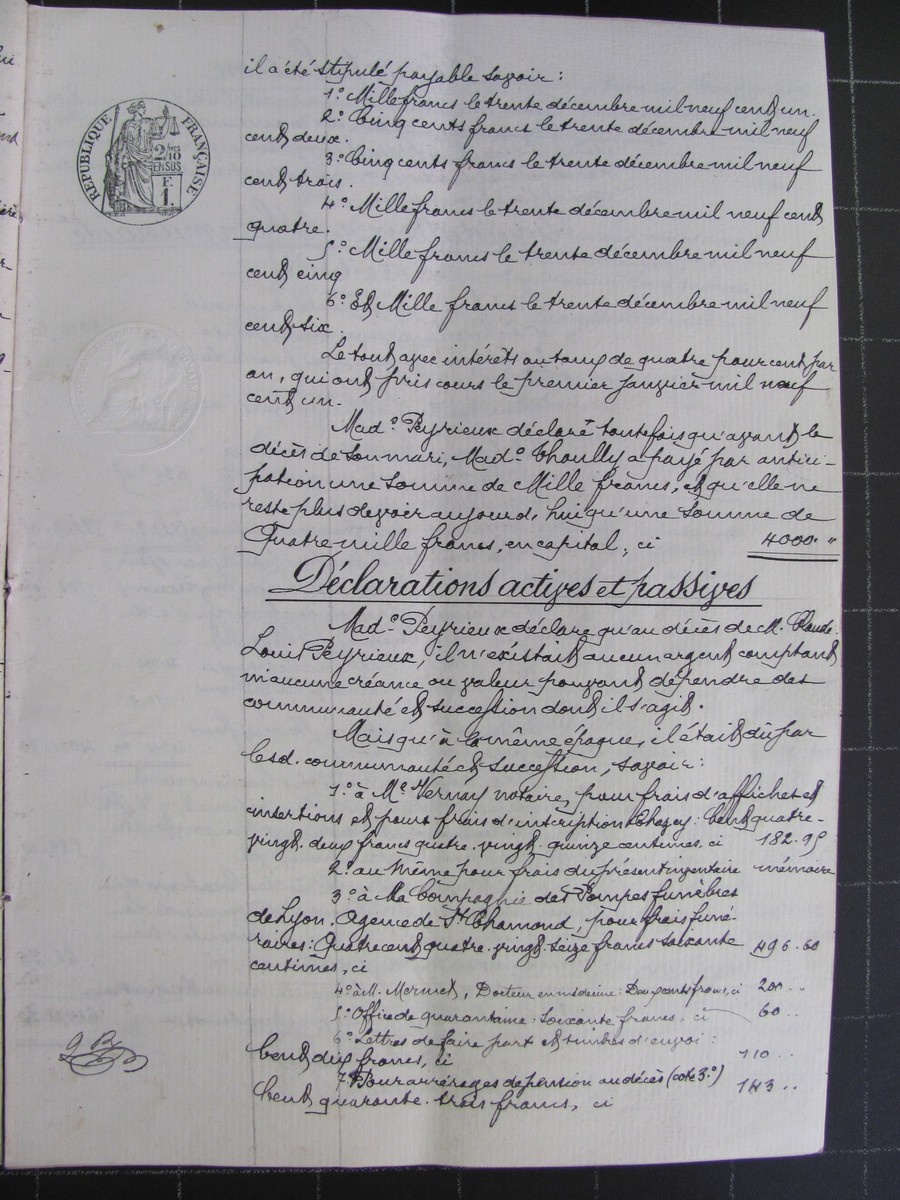 RÉPUBLIQUE FRANÇAISE
2/10
EN SUS
F.
1.
il a été stipulé payable savoir :
1º Mille francs le trente décembre mil neuf cent un.
2º Cinq cents francs le trente décembre mil neuf
cent deux.
3º Cinq cents francs le trente décembre mil neuf
cent trois.
4º Mille francs le trente décembre mil neuf cent
quatre.
5º Mille francs le trente décembre mil neuf
cent cinq
6º Et Mille francs le trente décembre mil neuf
cent six.
Le tout avec intérêts au taux de quatre pour cent par
an, qui ont pris cours le premier janvier mil neuf
cent un.
Made Peyrieux déclare toutefois qu'avant le
décès de son mari, Made Choully a payé par antici-
pation une somme de Mille francs, et qu'elle ne
reste plus devoir aujourd'hui qu'une somme de
Quatre mille francs, en capital, ci 4000 "
Déclarations actives et passives
Made Peyrieux déclare qu'au décès de M. Claude-
Louis Peyrieux, il n'existait aucun argent comptant
ni aucune créance ou valeur pouvant dépendre des
communauté et succession dont il s'agit.
Mais qu'à la même époque, il était dû par
lesd. communauté et succession, savoir :
1º à Me Vernay notaire, pour frais d'affiches et
insertions et pour frais d'inscription : Cent quatre-
vingt deux francs quatre-vingt-quinze centimes, ci 182.95
2º au même pour frais du présent inventaire mémoire
3º à la Compagnie des Pompes funèbres
de Lyon. Agence de St Chamond, pour frais funé-
raires : Quatre cent quatre-vingt-seize francs soixante
centimes, ci 496.60
4º à M. Docteur en médecine : Deux cents francs, ci 200 ..
5º Office de quarantaine : soixante francs, ci 60 ..
6º Lettres de faire part et timbres d'envoi :
Cent dix francs, ci 110 ..
7º Pour arrérages de pension au décès (cote 3º)
Cent quarante-trois francs, ci 143 ..